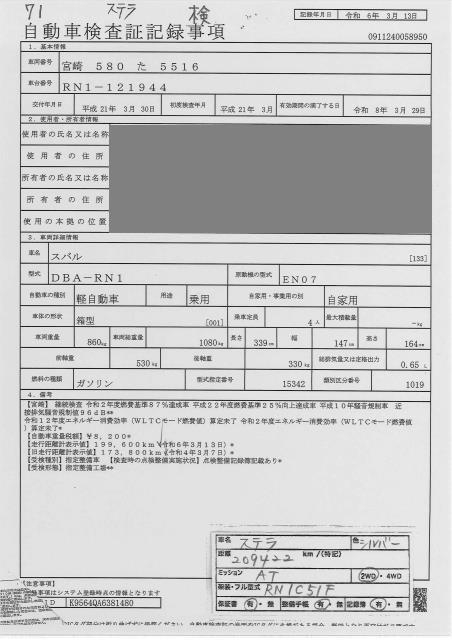 71 ステラ 検
記録年月日 令和 6年 3月 13日
自動車検査証記録事項
0911240058950
1. 基本情報
車両番号 宮崎 580 た 5516
車台番号 RN1-121944
交付年月日 平成 21年 3月 30日 初度検査年月 平成 21年 3月 有効期間の満了する日 令和 8年 3月 29日
2. 使用者・所有者情報
使用者の氏名又は名称
使用者の住所
所有者の氏名又は名称
所有者の住所
使用の本拠の位置
3. 車両詳細情報
車名 スバル [133]
型式 DBA-RN1 原動機の型式 EN07
自動車の種別 軽自動車 用途 乗用 自家用・事業用の別 自家用
車体の形状 箱型 [001] 乗車定員 4人 最大積載量 -kg
車両重量 860kg 車両総重量 1080kg 長さ 339cm 幅 147cm 高さ 164cm
前軸重 530kg 後軸重 330kg 総排気量又は定格出力 0.65 L
燃料の種類 ガソリン 型式指定番号 15342 類別区分番号 1019
4. 備考
【宮崎】 継続検査 令和2年度燃費基準87%達成車 平成22年度燃費基準25%向上達成車 平成10年騒音規制車 近
接排気騒音規制値96dB**
令和12年度エネルギー消費効率(WLTCモード燃費値)算定未了 令和2年度エネルギー消費効率(WLTCモード燃費値
)算定未了*
【自動車重量税額】¥8,200*
【走行距離計表示値】199,600km(令和6年3月13日)*
【旧走行距離計表示値】173,800km(令和4年3月7日)*
【受検種別】指定整備車 【検査時の点検整備実施状況】点検整備記録簿記載あり*
【受検形態】指定整備工場**
車名 ステラ 色 シルバー
距離 209422 km/(特記)
ミッション AT 2WD・4WD
車台・フル型式 RN1C51F
保証書 有・無 整備手帳 有・無 記録簿 有・無
【注意事項】
事項はシステム登録時点の情報となります
ID K9564QA6381480